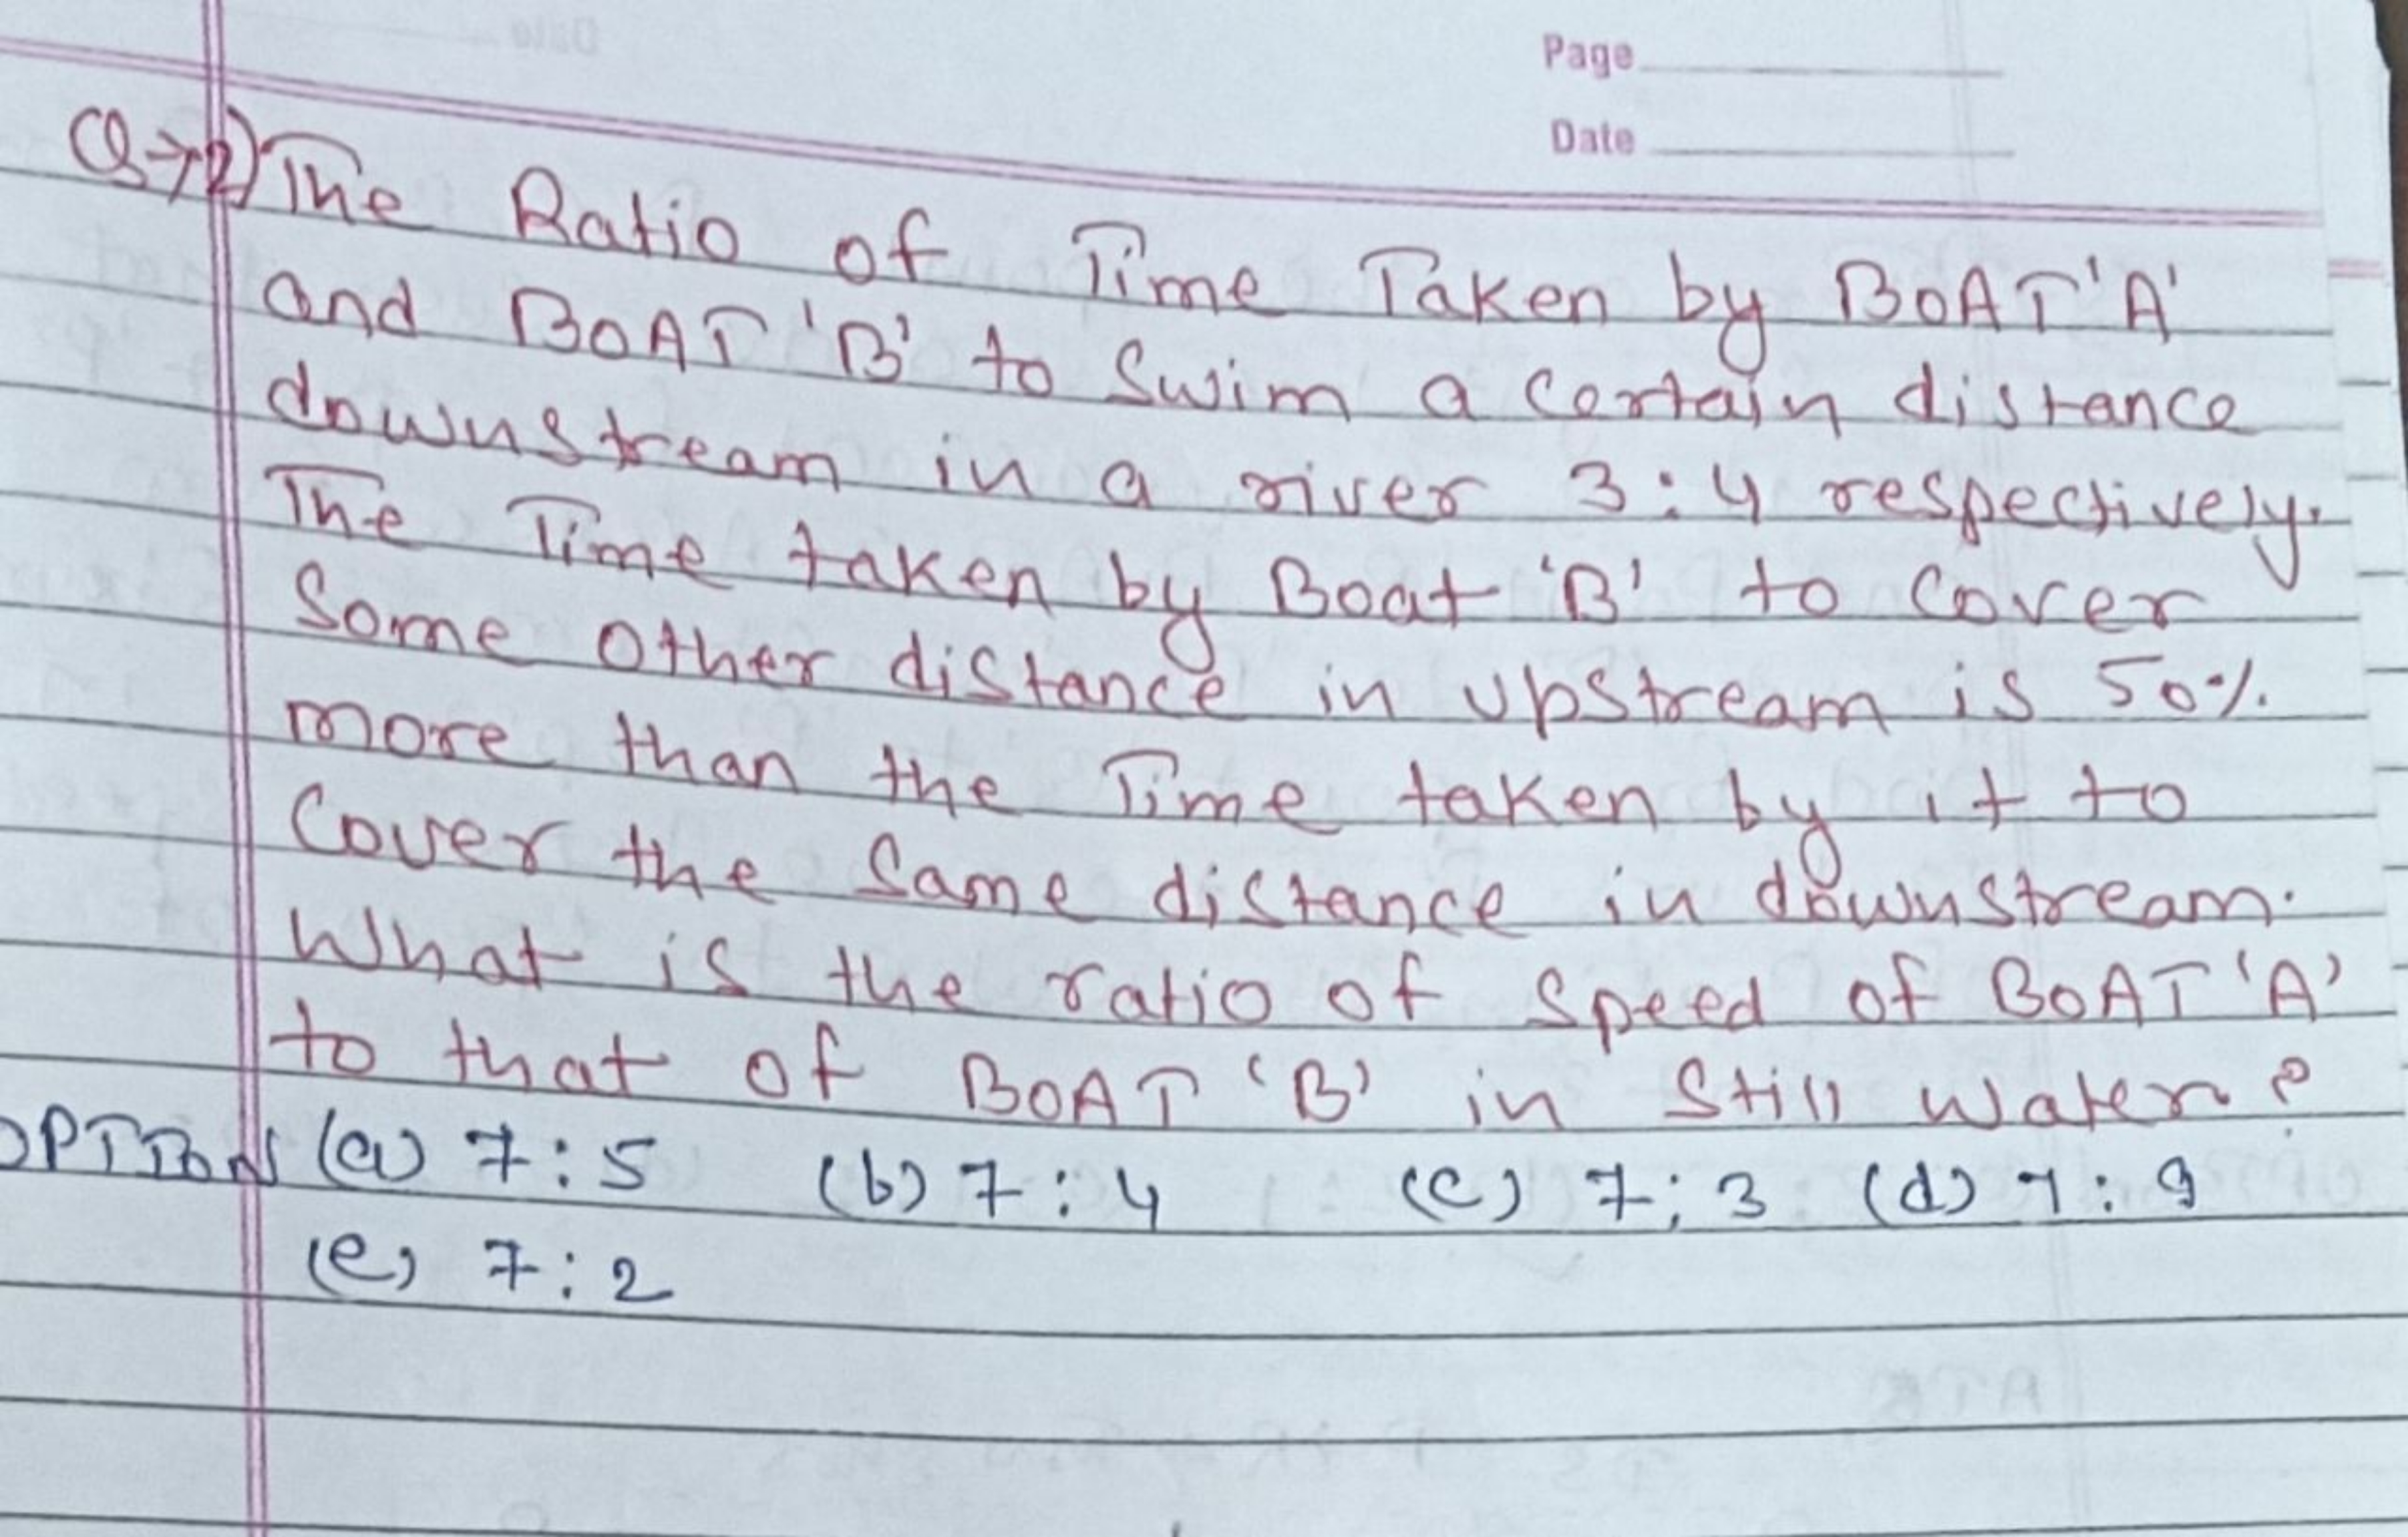 Page
Date
Q→2) The Ratio of Time Taken by BOAT 'A'
and BOAT 'B' to Swim a certain distance
downstream in a river 3:4 respectively.
The Time taken by Boat 'B' to Cover
Some other distance in upstream is 50%
more than the Time taken by it to
Cover the Same distance in downstream.
What is the ratio of Speed of BOAT 'A'
to that of BOAT 'B' in Still water?
OPTION (a) 7:5 (b) 7:4 (c) 7:3 (d) 7:9
(e) 7:2